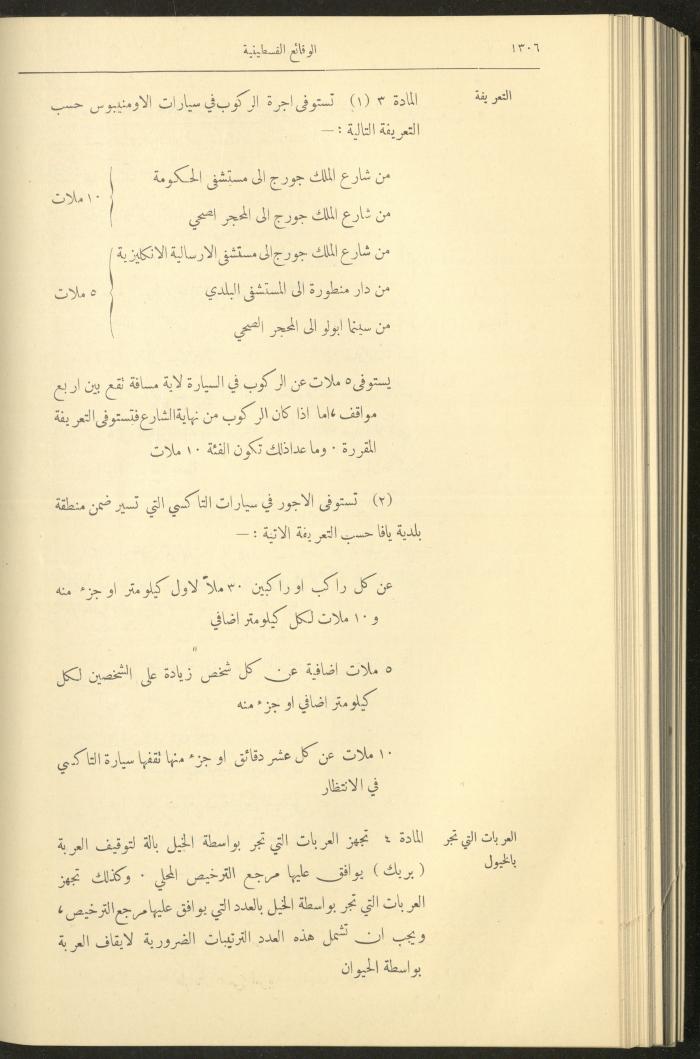 ١٣٠٦
الوقائع الفلسطينية
التعريفة
المادة ٣ (١) تستوفى اجرة الركوب في سيارات الاومنيبوس حسب
التعريفة التالية : —
من شارع الملك جورج الى مستشفى الحكومة
من شارع الملك جورج الى المحجر الصحي
١٠ ملات
من شارع الملك جورج الى مستشفى الارسالية الانكليزية
من دار منطورة الى المستشفى البلدي
من سينما ابولو الى المحجر الصحي
٥ ملات
يستوفى ٥ ملات عن الركوب في السيارة لاية مسافة تقع بين اربع
مواقف ، اما اذا كان الركوب من نهاية الشارع فتستوفى التعريفة
المقررة . وما عدا ذلك تكون الفئة ١٠ ملات
(٢) تستوفى الاجور في سيارات التاكسي التي تسير ضمن منطقة
بلدية يافا حسب التعريفة الاتية : —
عن كل راكب او راكبين ٣٠ ملاً لاول كيلومتر او جزء منه
و ١٠ ملات لكل كيلومتر اضافي
٥ ملات اضافية عن كل شخص زيادة على الشخصين لكل
كيلومتر اضافي او جزء منه
١٠ ملات عن كل عشر دقائق او جزء منها تقفها سيارة التاكسي
في الانتظار
العربات التي تجر
بالخيول
المادة ٤ تجهز العربات التي تجر بواسطة الخيل بالة لتوقيف العربة
( بريك ) يوافق عليها مرجع الترخيص المحلي . وكذلك تجهز
العربات التي تجر بواسطة الخيل بالعدد التي يوافق عليها مرجع الترخيص ،
ويجب ان تشمل هذه العدد الترتيبات الضرورية لايقاف العربة
بواسطة الحيوان